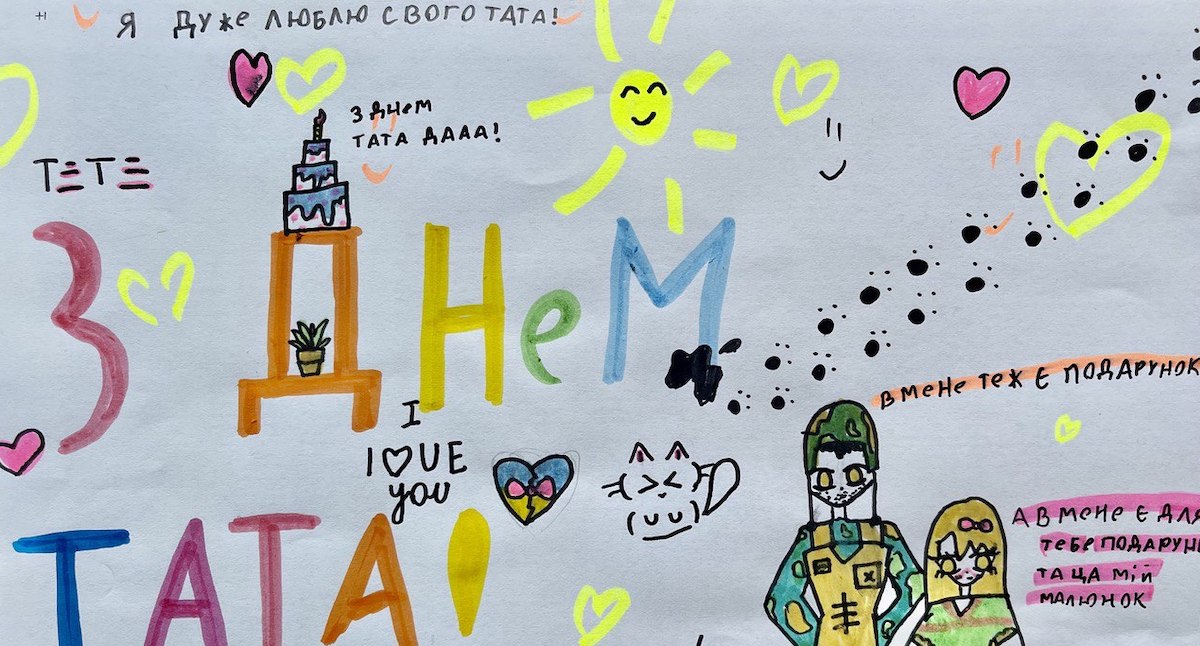 Я ДУЖЕ ЛЮБЛЮ СВОГО ТАТА!
З ДНеМ
ТАТА ДАААА!
З ДНеМ
ТАТА!
I
I LOVE
YOU
В МЕНЕ ТЕЖ Є ПОДАРУНОК
А В МЕНЕ Є ДЛЯ
ТЕБЕ ПОДАРУН
ТА ЦА МІЙ
МАЛЮНОК